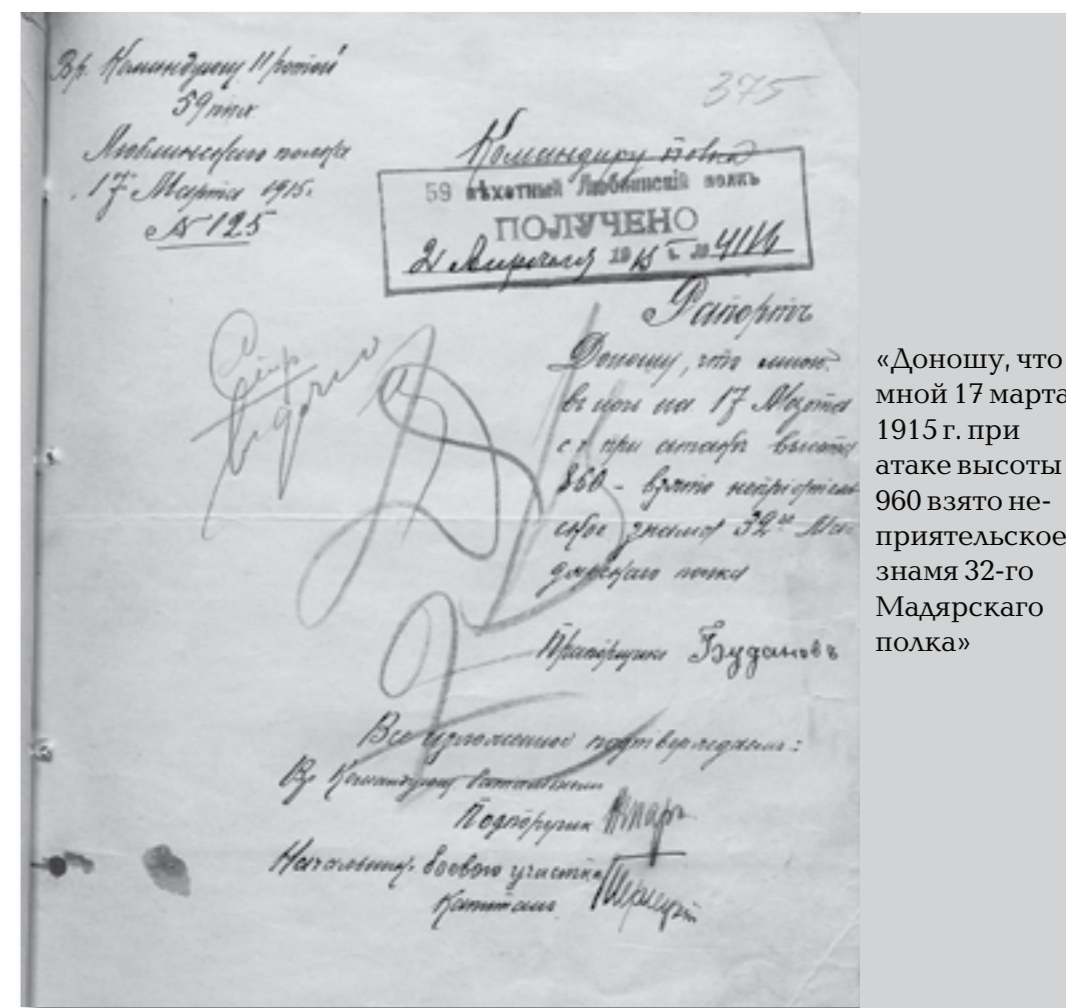 Вр. Командующій 11 ротой
59 пѣх.
Люблинскаго полка
17 Марта 1915 г.
№ 125
375
Командиру полка
59 пѣхотный Люблинскій полкъ
ПОЛУЧЕНО
2 Апрѣля 1915 г. №
Рапортъ
Доношу, что мной
въ ночь на 17 Марта
с г при атакѣ высоты
860 – взято непріятель
ское знамя 32го Мад
ярскаго полка
Прапорщикъ Будановъ
Все изложенное подтверждаемъ:
Вр Командующ баталіономъ
Подпоручик
Начальникъ боевого участка
Капитанъ
«Доношу, что
мной 17 марта
1915 г. при
атаке высоты
960 взято не-
приятельское
знамя 32-го
Мадярскаго
полка»